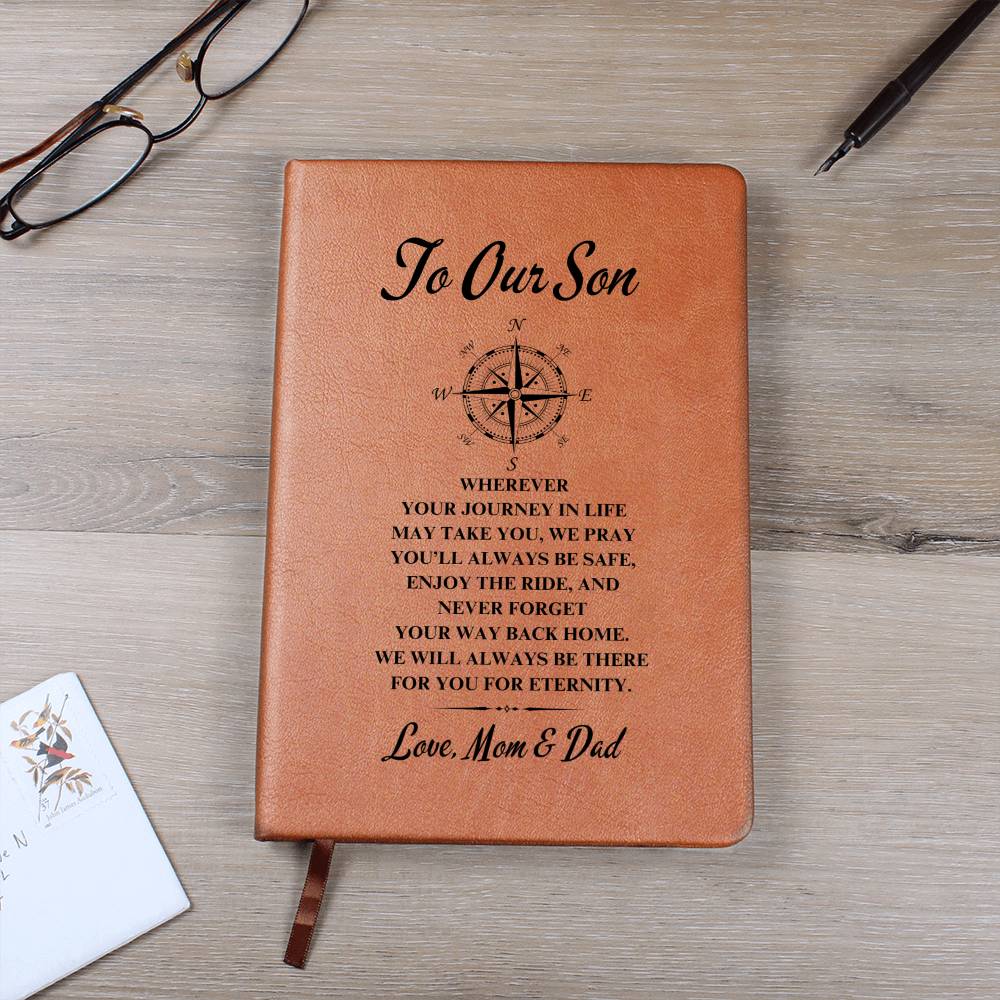 To Our Son
N
NW NE
W E
SW SE
S
WHEREVER
YOUR JOURNEY IN LIFE
MAY TAKE YOU, WE PRAY
YOU'LL ALWAYS BE SAFE,
ENJOY THE RIDE, AND
NEVER FORGET
YOUR WAY BACK HOME.
WE WILL ALWAYS BE THERE
FOR YOU FOR ETERNITY.
Love, Mom & Dad
37
John James Audubon
N
L